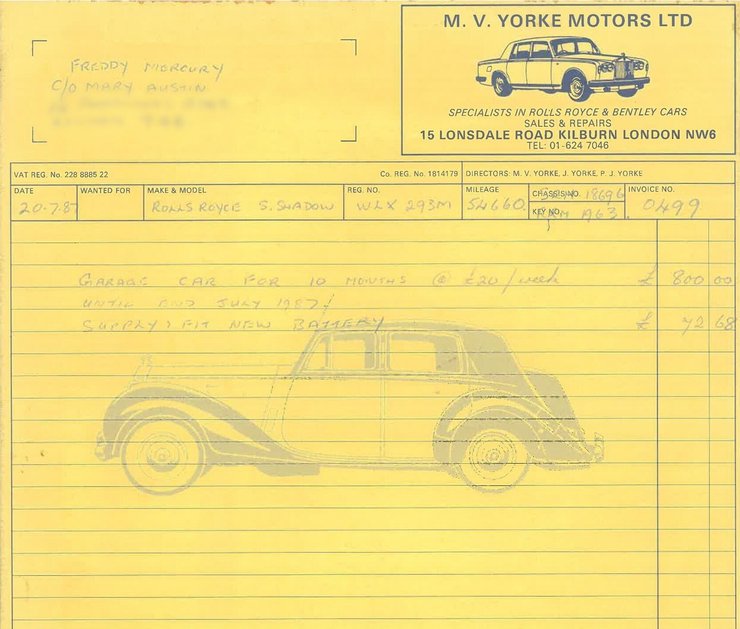 M. V. YORKE MOTORS LTD
SPECIALISTS IN ROLLS ROYCE & BENTLEY CARS
SALES & REPAIRS
15 LONSDALE ROAD KILBURN LONDON NW6
TEL: 01-624 7046
FREDDY MERCURY
C/O MARY AUSTIN
VAT REG. No. 228 8885 22 Co. REG. No. 1814179 DIRECTORS: M. V. YORKE, J. YORKE, P. J. YORKE
DATE WANTED FOR MAKE & MODEL REG. NO. MILEAGE CHASSIS NO. INVOICE NO.
20.7.87 ROLLS ROYCE S. SHADOW WLX 293M 54660 18696 0499
KEY NO. A63
GARAGE CAR FOR 10 MONTHS @ £20/week £ 800 00
UNTIL END JULY 1987
SUPPLY & FIT NEW BATTERY £ 72 68